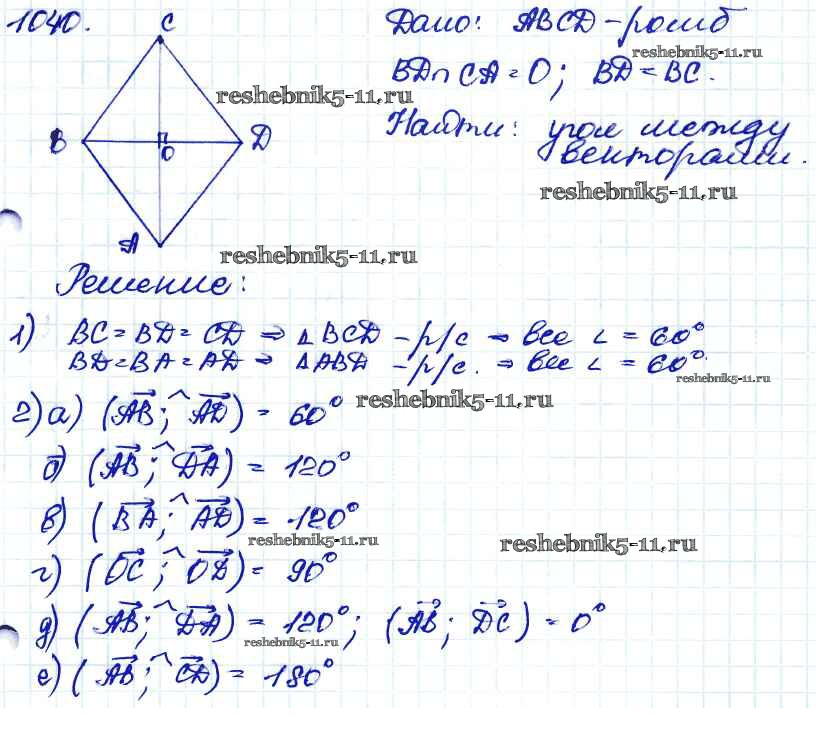 1040.
C
B
D
O
A
Дано: ABCD – ромб
reshebnik5-11.ru
BD∩CA = O; BD = BC.
reshebnik5-11.ru
Найти: угол между
векторами.
reshebnik5-11.ru
reshebnik5-11.ru
Решение:
1) BC = BD = CD ⇒ △BCD – р/с ⇒ все ∠ = 60°
BD = BA = AD ⇒ △ABD – р/с. ⇒ все ∠ = 60°.
reshebnik5-11.ru
2) а) (AB⃗ ;^ AD⃗) = 60°
reshebnik5-11.ru
б) (AB⃗ ;^ DA⃗) = 120°
в) (BA⃗ ;^ AD⃗) = 120°
reshebnik5-11.ru
reshebnik5-11.ru
г) (OC⃗ ;^ OD⃗) = 90°
д) (AB⃗ ;^ DA⃗) = 120°; (AB⃗ ; DC⃗) = 0°
reshebnik5-11.ru
е) (AB⃗ ;^ CD⃗) = 180°